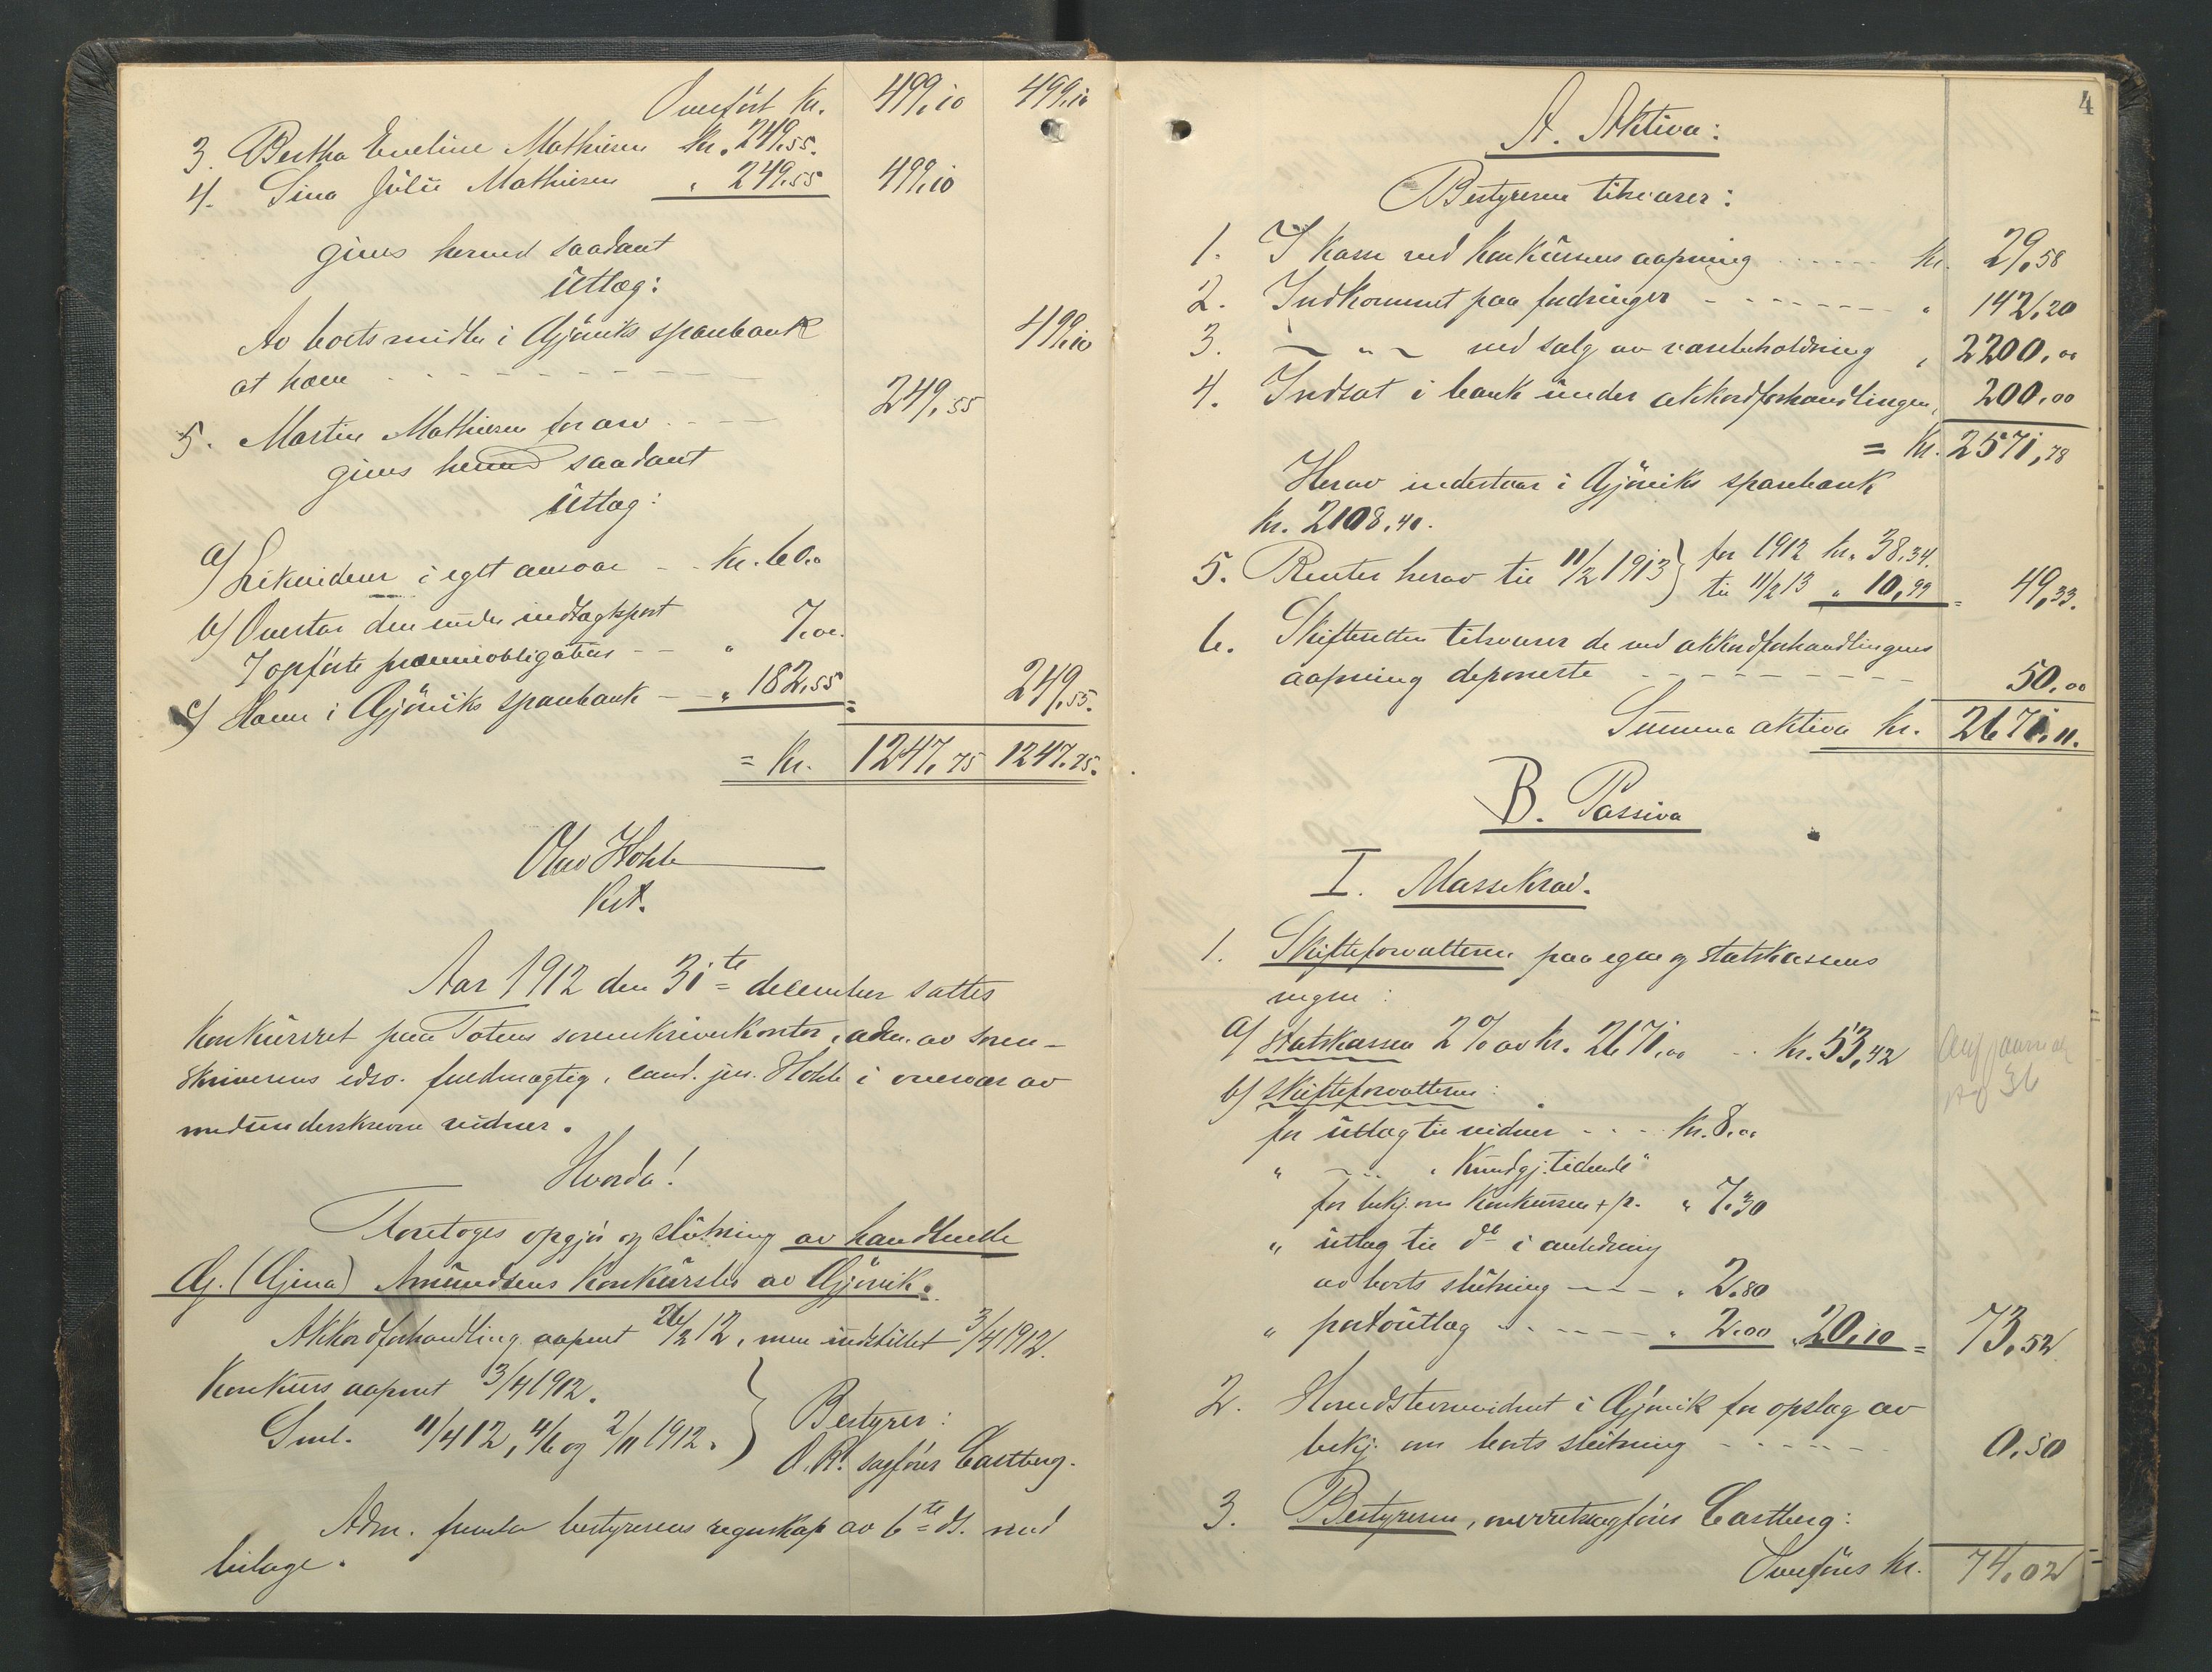 Overført kr. 499,10 499,10
3. Bertha Eveline Mathiesen kr. 249.55.
4. Sina Julie Mathiesen " 249.55 499,10
gives herved saadant
Utlæg:
Av boets midler i Gjøviks sparebank
at hæve - - - - - 499,10
5. Martin Mathiesen for arv - - - 249,55
gives herved saadant
Utlæg:
a) Likvideres i eget ansvar - - kr. 60.00
b) Overtar den under indtægtspost
7 opførte præmieobligation - - " 7.00.
c) Hæver i Gjøviks sparebank - - " 182.55 = 249,55.
= kr. 1247,75 1247.75.
Olav Hohle
kst.
Aar 1912 den 31te december sattes
konkursret paa Totens sorenskriverkontor, adm. av soren-
skriverens edsv. fuldmægtig, cand. jur. Hohle i overvær av
medunderskrevne vidner.
Hvorda!
Foretoges opgjør og slutning av handlende
G. (Gina) Amundsens konkursbo av Gjøvik.
Akkordforhandling aapnet 26/2 12, men indstillet 3/4 1912.
Konkurs aapnet 3/4 1912.
Sml. 11/4 12, 4/6 og 2/11 1912. } Bestyrer:
O.R. sagfører Castberg.
Adm. fremla bestyrerens regnskap av 6te ds. med
bilage.
4
A. Aktiva:
Bestyreren tilsvarer:
1. I kasse ved konkursens aapning - - - kr. 29,58
2. Indkommet paa fordringer - - - - - " 142,20
3. - " - ved salg av varebeholdning " 2200,00
4. Indsat i bank under akkordforhandlingen " 200,00
= kr. 2571,78
Herav indestaar i Gjøviks sparebank
kr. 2108.40.
5. Renter herav til 11/2 1913 } for 1912 kr. 38.34.
til 11/2 13 " 10,99 = 49,33.
6. Skifteretten tilsvarer de ved akkordforhandlingens
aapning deponerte - - - - - 50,00
Summa aktiva kr. 2671,11.
B. Passiva
I. Massekrav.
1. Skifteforvalteren paa egne og statskassens
vegne:
a) Statskassen 2% av kr. 2671,00 - - kr. 53,42
36
b) Skifteforvalteren:
for utlæg til vidner - - - kr. 8.00
" - " - " Kundgj. tidende"
for bekj. om konkursen + p. " 7.30
" utlæg til do i anledning
av boets slutning - - - " 2.80
" portoutlæg - - - - " 2.00 " 20,10 = 73,52
2. Hovedstevnevidnet i Gjøvik for opslag av
bekj. om boets slutning - - - - 0,50
3. Bestyreren, overretssagfører Castberg:
Overføres kr. 74,02